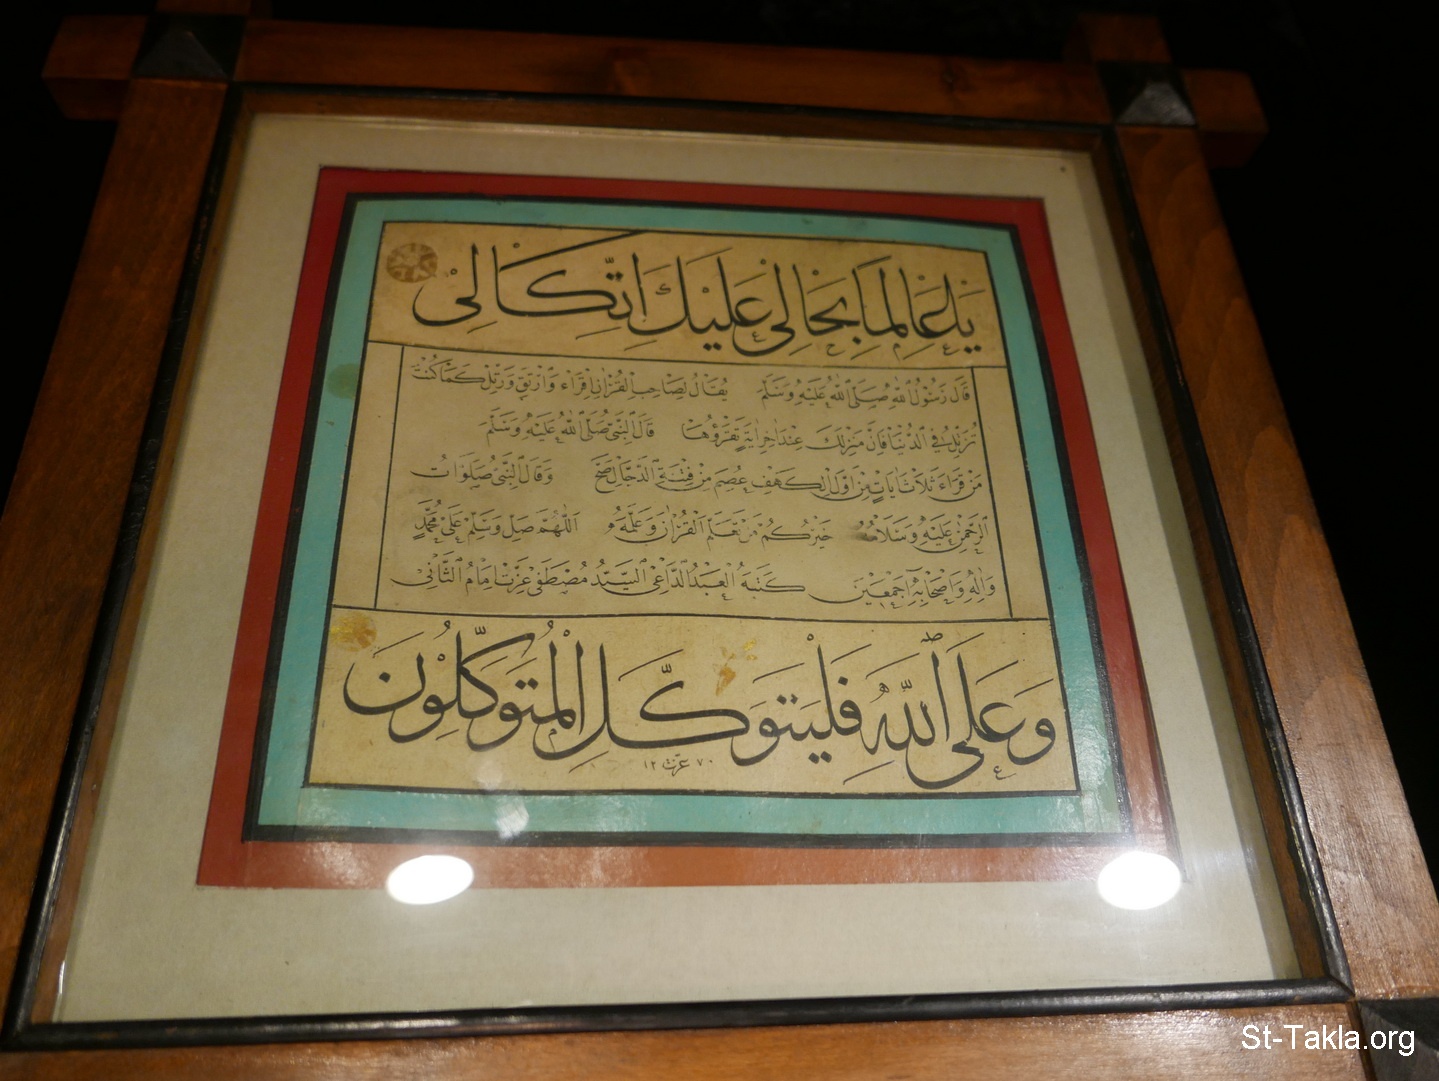 يا عالما بحالي عليك اتكالي
قال رسول الله صلى الله عليه وسلم يقال لصاحب القرآن اقراء وارتق ورتل كما كنت
ترتل في الدنيا فان منزلك عند اخر اية تقرؤها قال النبي صلى الله عليه وسلم
من قراء ثلاث ايات من اول الكهف عصم من فتنة الدجال صح وقال النبي صلوات
الرحمن عليه وسلامه خيركم من تعلم القرآن وعلمه اللهم صل وسلم على محمد
واله واصحابه اجمعين كتبه العبد الداعي السيد مصطفى عزت امام الثاني
وعلى الله فليتوكل المتوكلون
عزت ١٢٧٠
St-Takla.org